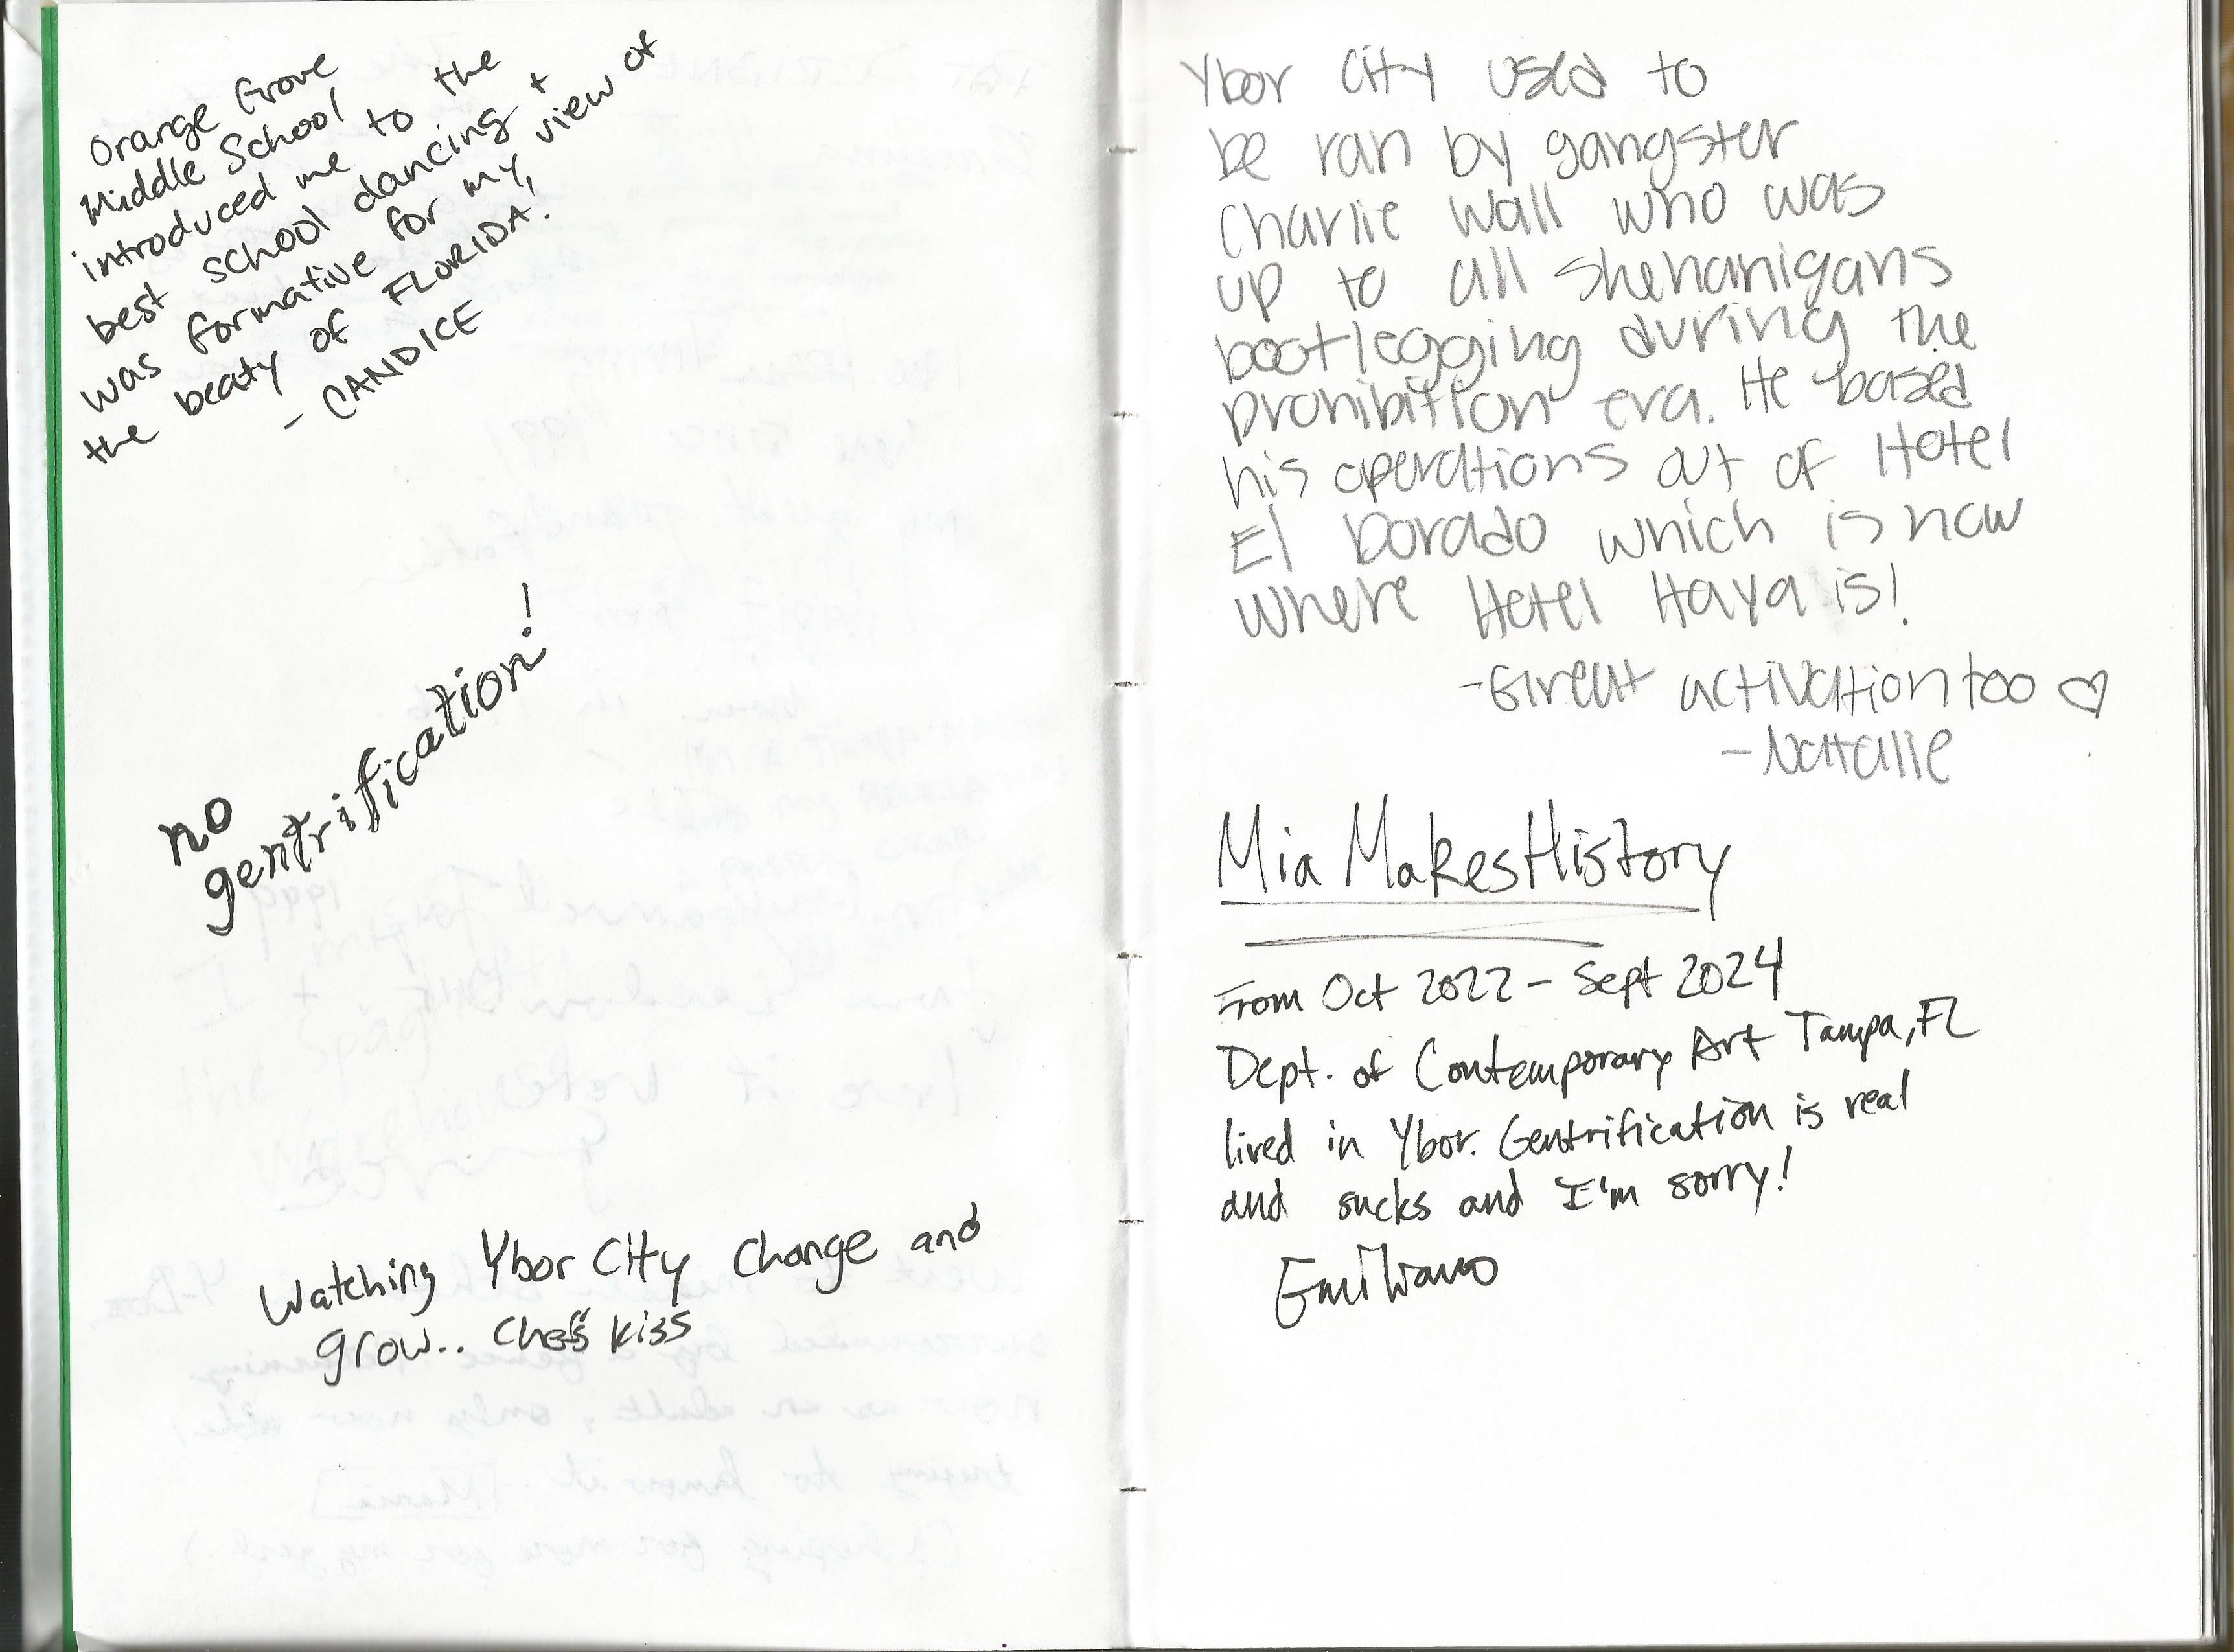 Orange Grove
Middle School
introduced me to the
best school dancing +
was formative for my view of
the beaty of FLORIDA.
- CANDICE
no
gentrification!
Watching Ybor City Change and
grow.. Chefs kiss
Ybor City used to
be ran by gangster
Charlie Wall who was
up to all shenanigans
bootlegging during the
prohibition era. He based
his operations out of Hotel
El Dorado which is now
where Hotel Haya is!
-Great activation too ♡
-Natalie
Mia MakesHistory
From Oct 2022 - Sept 2024
Dept. of Contemporary Art Tampa, FL
lived in Ybor. Gentrification is real
and sucks and I'm sorry!
Emiliano